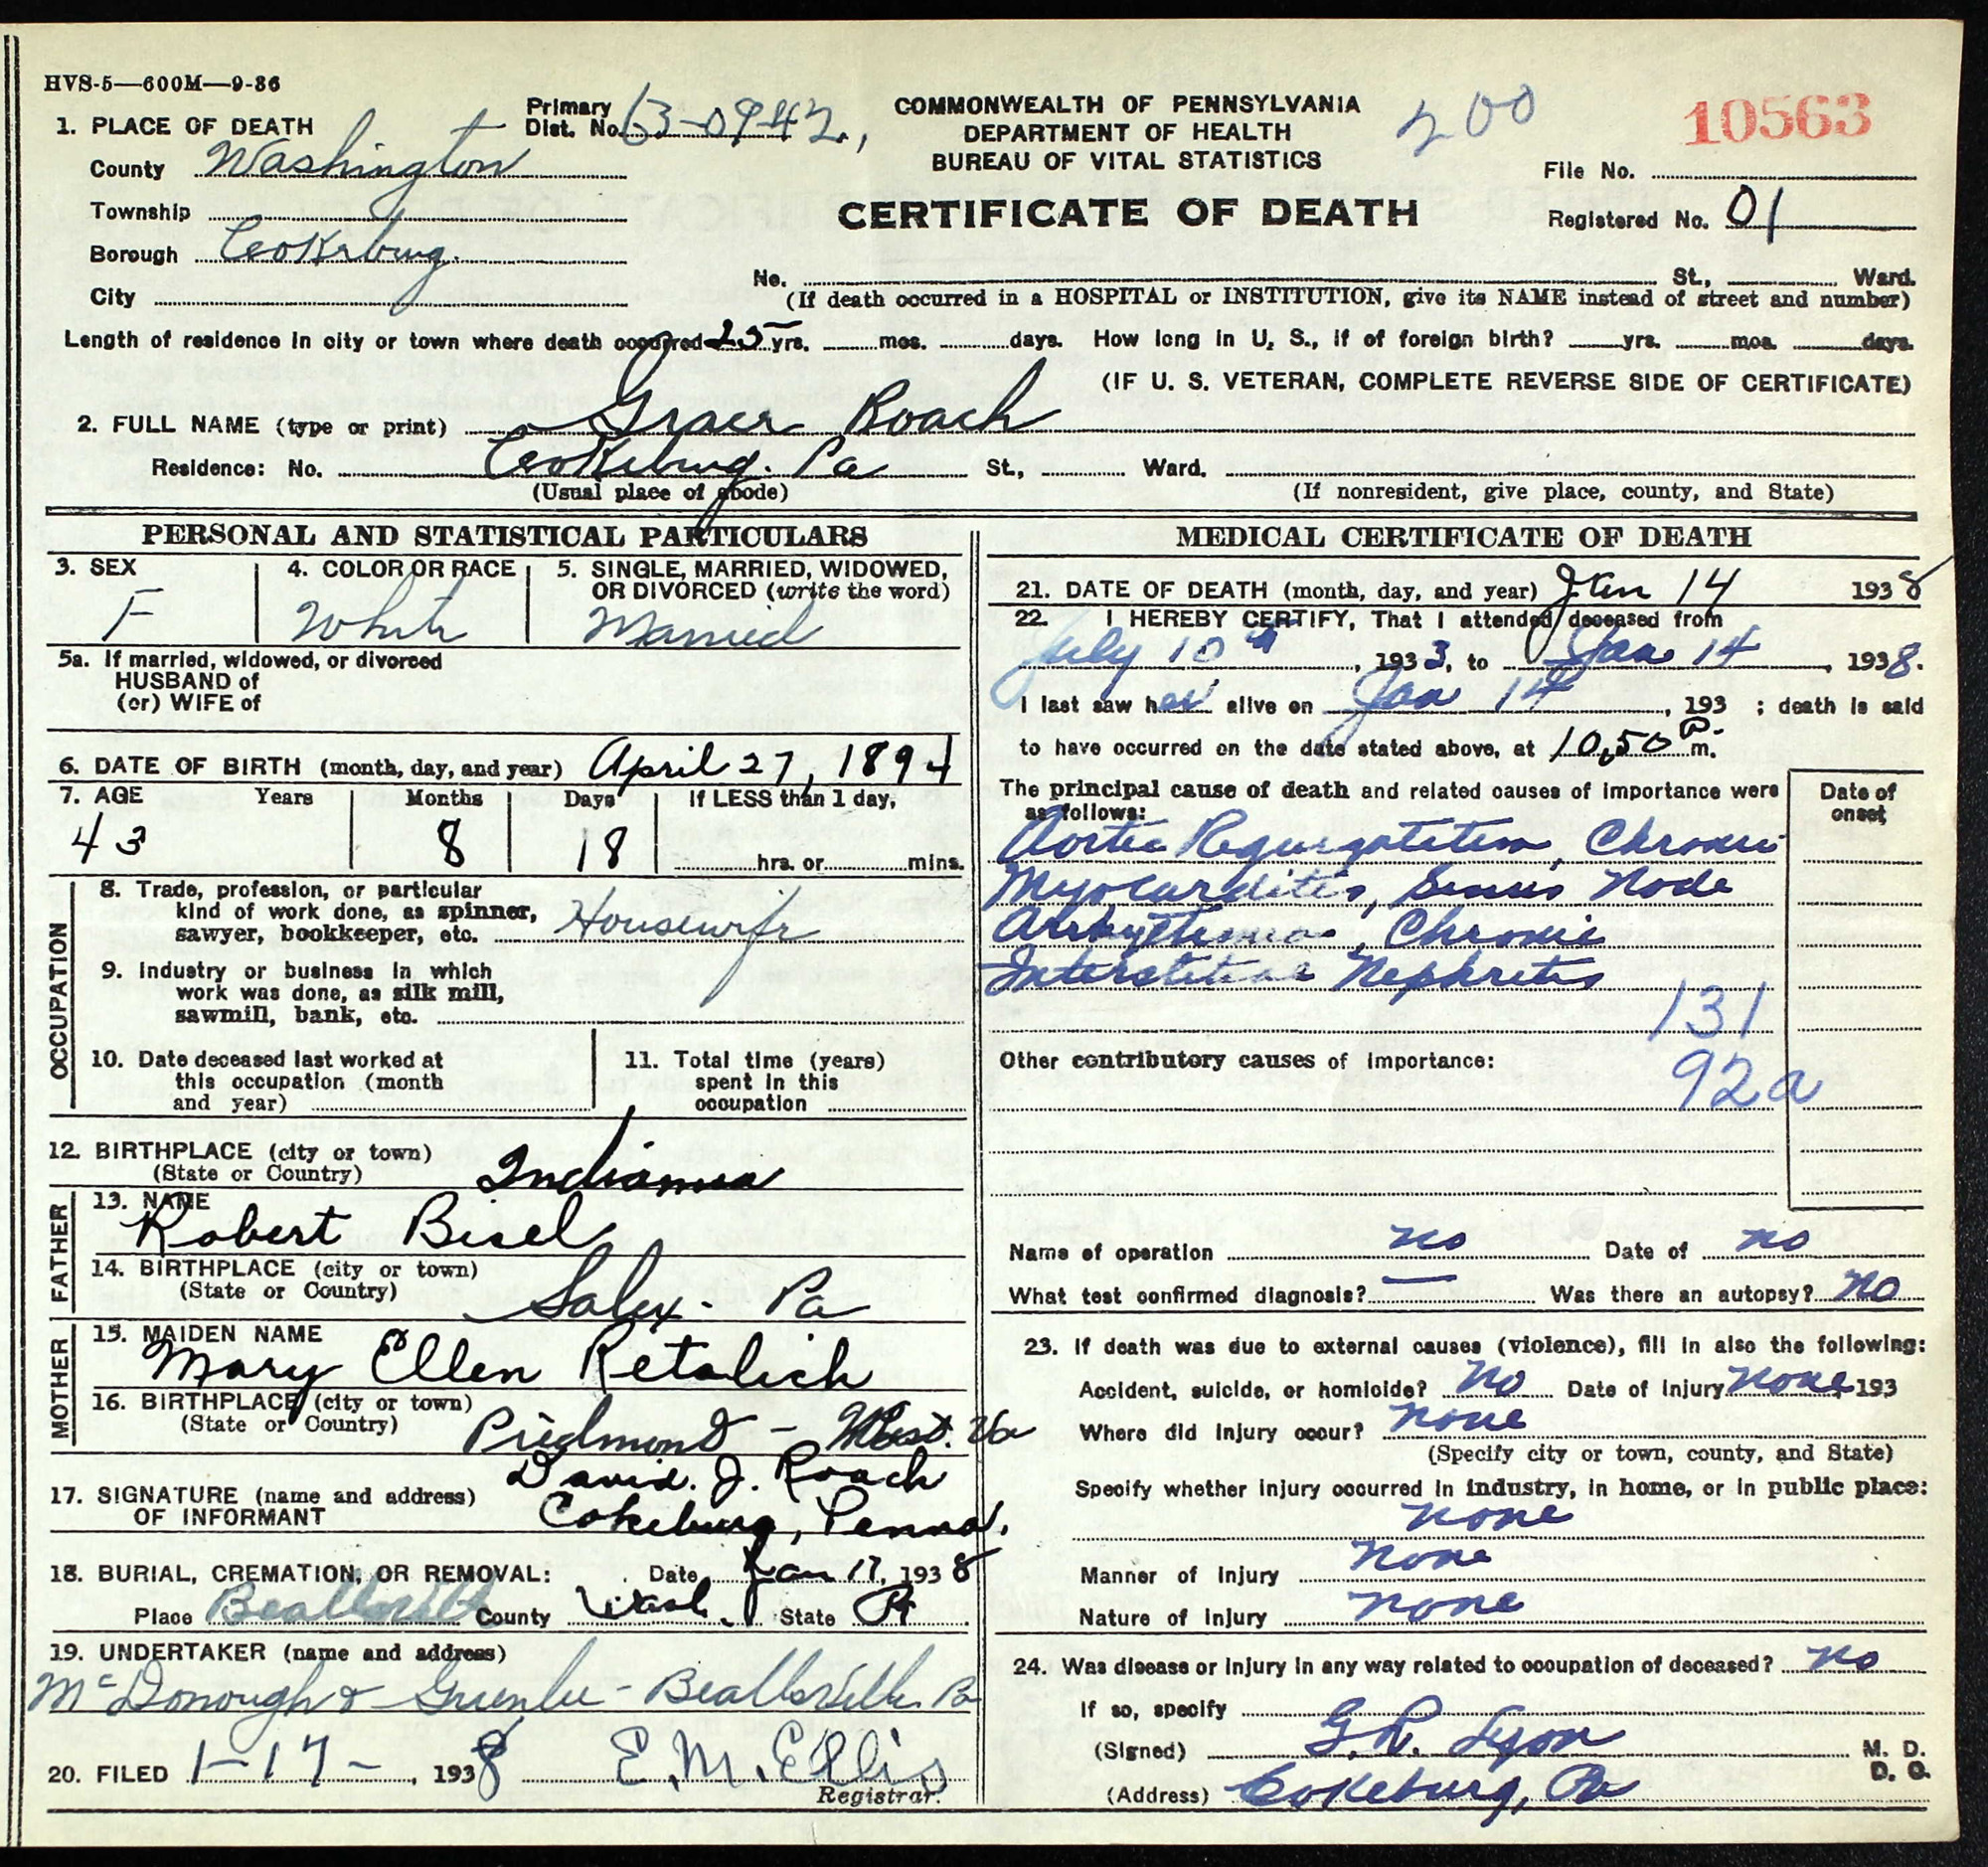 HVS-5—600M—9-36
1. PLACE OF DEATH
Primary Dist. No. 63-0942,
COMMONWEALTH OF PENNSYLVANIA
DEPARTMENT OF HEALTH
BUREAU OF VITAL STATISTICS
200
10563
County Washington
File No.
Township
CERTIFICATE OF DEATH
Registered No. 01
Borough Cokeburg.
City
No. St., Ward.
(If death occurred in a HOSPITAL or INSTITUTION, give its NAME instead of street and number)
Length of residence in city or town where death occurred 25 yrs. mos. days. How long in U. S., if of foreign birth? yrs. mos. days.
(IF U. S. VETERAN, COMPLETE REVERSE SIDE OF CERTIFICATE)
2. FULL NAME (type or print) Grace Roach
Residence: No. Cokeburg. Pa St., Ward.
(Usual place of abode)
(If nonresident, give place, county, and State)
PERSONAL AND STATISTICAL PARTICULARS
3. SEX
F
4. COLOR OR RACE
White
5. SINGLE, MARRIED, WIDOWED, OR DIVORCED (write the word)
Married
5a. If married, widowed, or divorced
HUSBAND of
(or) WIFE of
6. DATE OF BIRTH (month, day, and year) April 27, 1894
7. AGE Years Months Days If LESS than 1 day,
43 8 18 hrs. or mins.
OCCUPATION
8. Trade, profession, or particular
kind of work done, as spinner,
sawyer, bookkeeper, etc. Housewife
9. Industry or business in which
work was done, as silk mill,
sawmill, bank, etc.
10. Date deceased last worked at
this occupation (month
and year)
11. Total time (years)
spent in this
occupation
12. BIRTHPLACE (city or town)
(State or Country) Indianna
FATHER
13. NAME
Robert Bisel
14. BIRTHPLACE (city or town)
(State or Country) Salex - Pa
MOTHER
15. MAIDEN NAME
Mary Ellen Retalich
16. BIRTHPLACE (city or town)
(State or Country) Piedmont - West. Va
17. SIGNATURE (name and address)
OF INFORMANT
David. J. Roach
Cokeburg, Penna.
18. BURIAL, CREMATION, OR REMOVAL: Date Jan 17, 1938
Place Beallsville County Wash. State Pa
19. UNDERTAKER (name and address)
McDonough & Greenlee - Beallsville Pa
20. FILED 1-17-, 1938 E. M. Ellis
Registrar.
MEDICAL CERTIFICATE OF DEATH
21. DATE OF DEATH (month, day, and year) Jan 14 1938
22. I HEREBY CERTIFY, That I attended deceased from
July 10th, 1933, to Jan 14, 1938.
I last saw her alive on Jan 14, 193 ; death is said
to have occurred on the date stated above, at 10,50 P. m.
The principal cause of death and related causes of importance were
as follows:
Date of onset
Aortic Regurgatation, Chronic
Myocarditis, Sinus Node
Arrhythmia, Chronic
Interstitial Nephritis
131
Other contributory causes of importance:
92a
Name of operation no Date of no
What test confirmed diagnosis? — Was there an autopsy? no
23. If death was due to external causes (violence), fill in also the following:
Accident, suicide, or homicide? No Date of injury none 193
Where did injury occur? none
(Specify city or town, county, and State)
Specify whether injury occurred in industry, in home, or in public place:
none
Manner of injury none
Nature of injury none
24. Was disease or injury in any way related to occupation of deceased? no
If so, specify
(Signed) G. R. Lyon M. D.
D. O.
(Address) Cokeburg, Pa